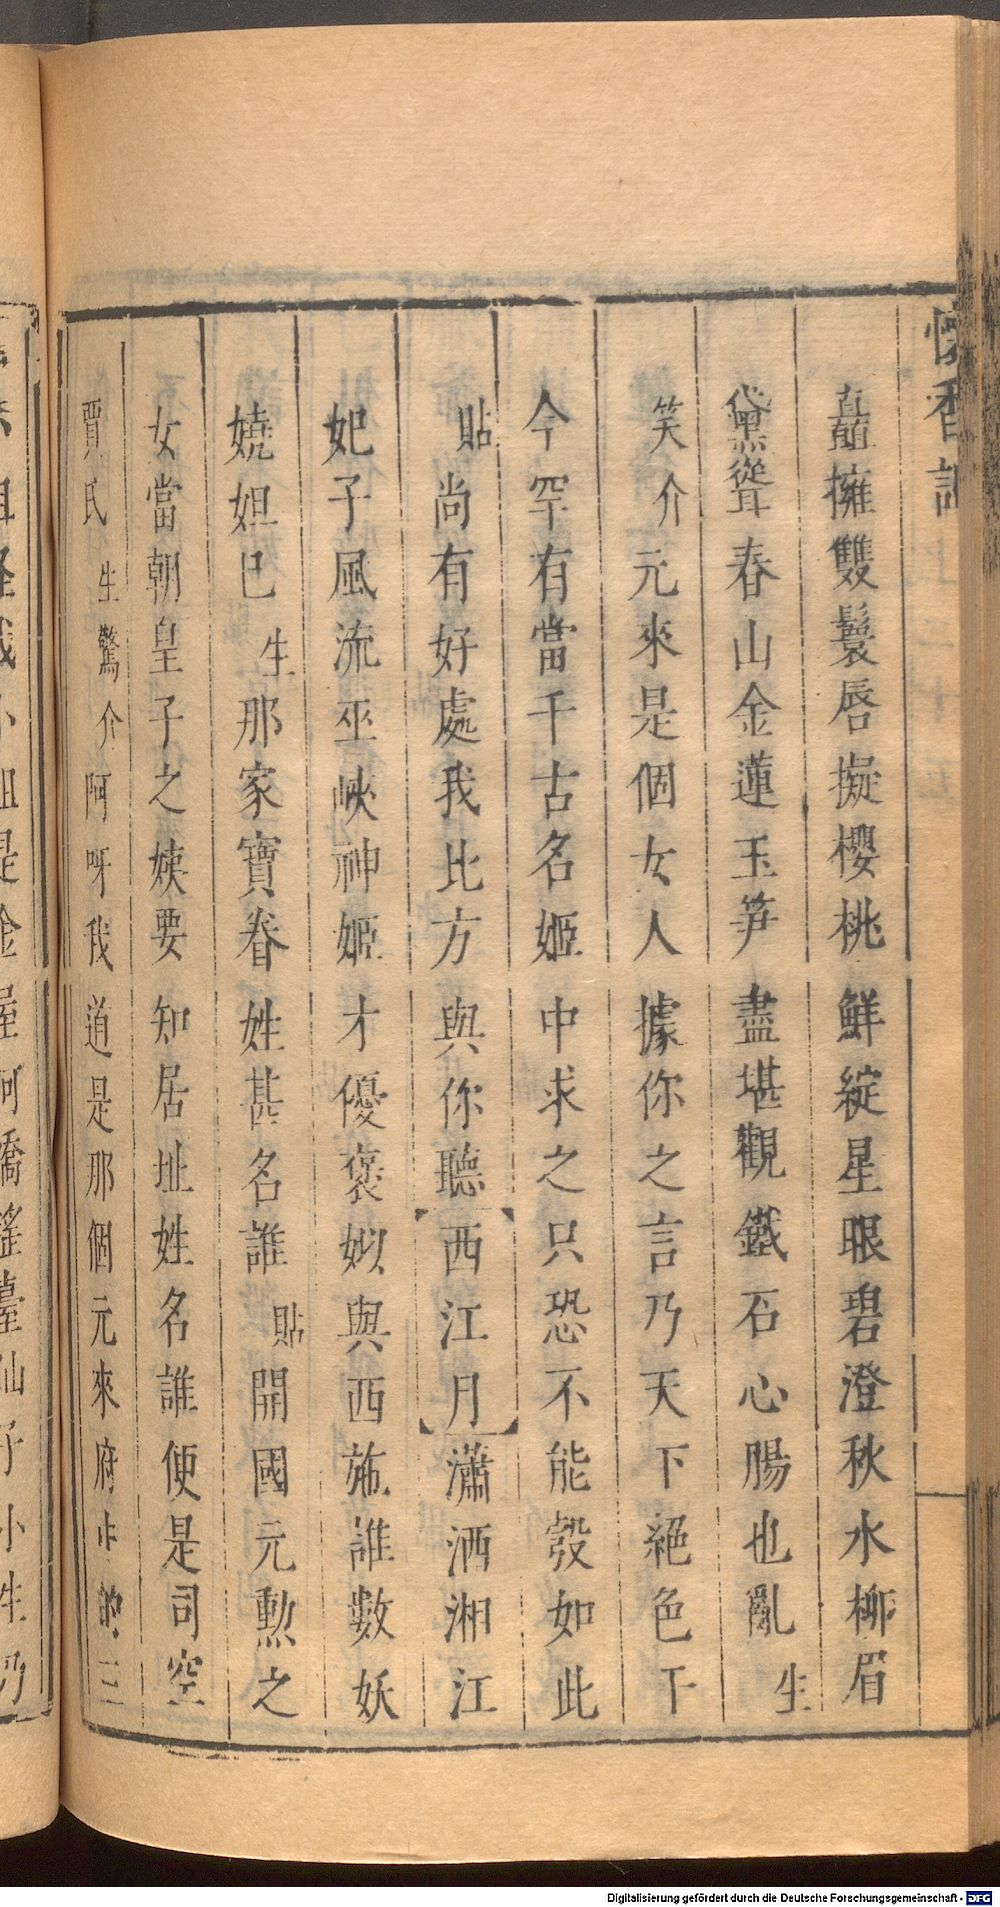 懷香記
矗擁雙鬟唇擬櫻桃鮮綻星眼碧澄秋水柳眉
黛聳春山金蓮玉笋盡堪觀鐵石心腸也亂生
笑介元來是個女人據你之言乃天下絕色下
今罕有當千古名姬中求之只恐不能彀如此
貼尚有好處我比方與你聽西江月瀟洒湘江
妃子風流巫峽神姬才優褒姒與西施誰數妖
嬈妲巳生那家寶眷姓甚名誰貼開國元勲之
女當朝皇子之姨要知居址姓名誰便是司空
賈氏生驚介阿呀我道是那個元來府中的三
小姐是金屋阿嬌瑤臺仙子小生乃
Digitalisierung gefördert durch die Deutsche Forschungsgemeinschaft - DFG